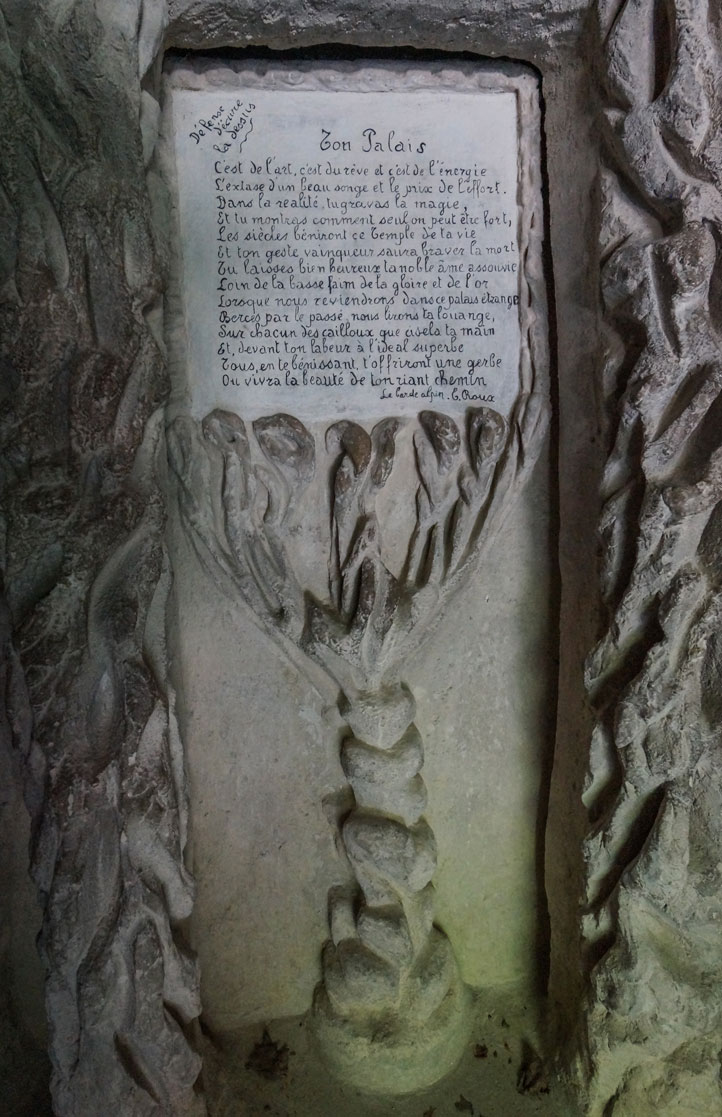 Défense
d'écrire
là dessus
Ton Palais
C'est de l'art, c'est du rêve et c'est de l'énergie
L'extase d'un beau songe et le prix de l'effort.
Dans la réalité, tu gravas la magie,
Et tu montras comment seul on peut être fort,
Les siècles béniront ce Temple de ta vie
Et ton geste vainqueur saura braver la mort
Tu laisses bien heureux ta noble âme assouvie
Loin de la basse faim de la gloire et de l'or
Lorsque nous reviendrons dans ce palais étrange
Bercés par le passé, nous lirons ta louange,
Sur chacun des cailloux que cisela ta main
Et, devant ton labeur à l'idéal superbe
Tous, en te bénissant, t'offriront une gerbe
Ou vivra la beauté de ton riant chemin
Le barde alpin. E. Roux